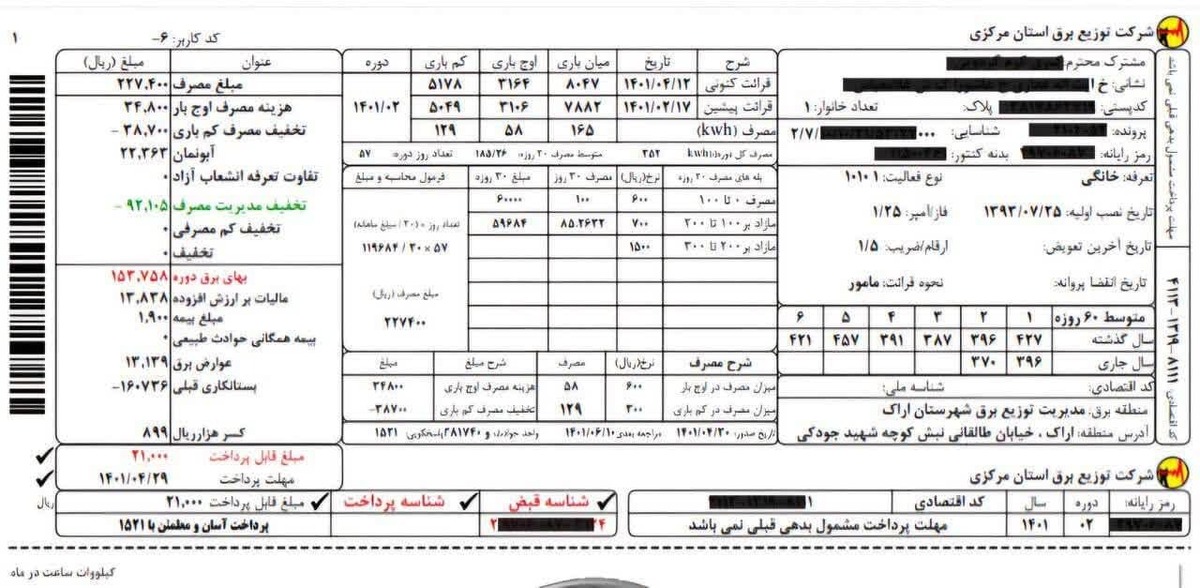 شرکت توزیع برق استان مرکزی
کد کاربر: ۶-
۱
مشترک محترم:
نشانی: خ
کدپستی: پلاک: تعداد خانوار: ۱
پرونده: شناسایی: ۲/۷/ ۰۰۰
رمز رایانه: بدنه کنتور:
تعرفه: خانگی نوع فعالیت: ۱۰۱۰۱
تاریخ نصب اولیه: ۱۳۹۳/۰۷/۲۵ فاز/آمپر: ۱/۲۵
تاریخ آخرین تعویض: ارقام/ضریب: ۱/۵
تاریخ انقضا پروانه: نحوه قرائت: مامور
متوسط ۶۰ روزه ۱ ۲ ۳ ۴ ۵ ۶
سال گذشته ۴۲۷ ۳۹۶ ۳۸۷ ۳۹۱ ۴۵۷ ۴۲۱
سال جاری ۳۹۶ ۳۷۰
کد اقتصادی: شناسه ملی:
منطقه برق: مدیریت توزیع برق شهرستان اراک
آدرس منطقه: اراک ، خیابان طالقانی نبش کوچه شهید جودکی
مهلت پرداخت مشمول بدهی قبلی نمی باشد
کد اقتصادی: ۸۱۱۱-۱۳۱۹-۴۱۱۳
شرح تاریخ میان باری اوج باری کم باری دوره
قرائت کنونی ۱۴۰۱/۰۴/۱۲ ۸۰۴۷ ۳۱۶۴ ۵۱۷۸ ۱۴۰۱/۰۲
قرائت پیشین ۱۴۰۱/۰۲/۱۷ ۷۸۸۲ ۳۱۰۶ ۵۰۴۹
مصرف (kwh) ۱۶۵ ۵۸ ۱۲۹
مصرف کل دوره(kwh) ۳۵۲ متوسط مصرف ۳۰ روزه: ۱۸۵/۲۶ تعداد روز دوره: ۵۷
پله های مصرف ۳۰ روزه نرخ(ریال) مصرف ۳۰ روز مبلغ ۳۰ روزه فرمول محاسبه و مبلغ
مصرف ۰ تا ۱۰۰ ۶۰۰ ۱۰۰ ۶۰۰۰۰
مازاد بر ۱۰۰ تا ۲۰۰ ۷۰۰ ۸۵.۲۶۳۲ ۵۹۶۸۴ تعداد روز × (۳۰ / مبلغ ماهانه)
مازاد بر ۲۰۰ تا ۳۰۰ ۱۵۰۰ ۱۱۹۶۸۴ / ۳۰ × ۵۷
مبلغ مصرف (ریال)
۲۲۷۴۰۰
شرح مصرف نرخ(ریال) مصرف شرح مبلغ مبلغ
میزان مصرف در اوج بار ۶۰۰ ۵۸ هزینه مصرف اوج باری ۳۴۸۰۰
میزان مصرف در کم باری ۳۰۰ ۱۲۹ تخفیف مصرف کم باری ۳۸۷۰۰-
تاریخ صدور: ۱۴۰۱/۰۴/۲۰ مراجعه بعدی: ۱۴۰۱/۰۶/۱۰ واحد حوادث: پاسخگویی: ۱۵۲۱
عنوان مبلغ (ریال)
مبلغ مصرف ۲۲۷,۴۰۰
هزینه مصرف اوج بار ۳۴,۸۰۰
تخفیف مصرف کم باری ۳۸,۷۰۰ -
آبونمان ۲۲,۳۶۳
تفاوت تعرفه انشعاب آزاد ۰
تخفیف مدیریت مصرف ۹۲,۱۰۵ -
تخفیف کم مصرفی ۰
تخفیف ۰
بهای برق دوره ۱۵۳,۷۵۸
مالیات بر ارزش افزوده ۱۳,۸۳۸
مبلغ بیمه ۱,۹۰۰
بیمه همگانی حوادث طبیعی ۰
عوارض برق ۱۳,۱۳۹
بستانکاری قبلی ۱۶۰۷۳۶-
کسر هزار ریال ۸۹۹
مبلغ قابل پرداخت ۲۱,۰۰۰
مهلت پرداخت ۱۴۰۱/۰۴/۲۹
شرکت توزیع برق استان مرکزی
رمز رایانه: دوره سال کد اقتصادی ۱
۰۲ ۱۴۰۱ مهلت پرداخت مشمول بدهی قبلی نمی باشد
شناسه قبض شناسه پرداخت مبلغ قابل پرداخت ۲۱,۰۰۰ ریال
پرداخت آسان و مطمئن با ۱۵۲۱
کیلووات ساعت در ماه